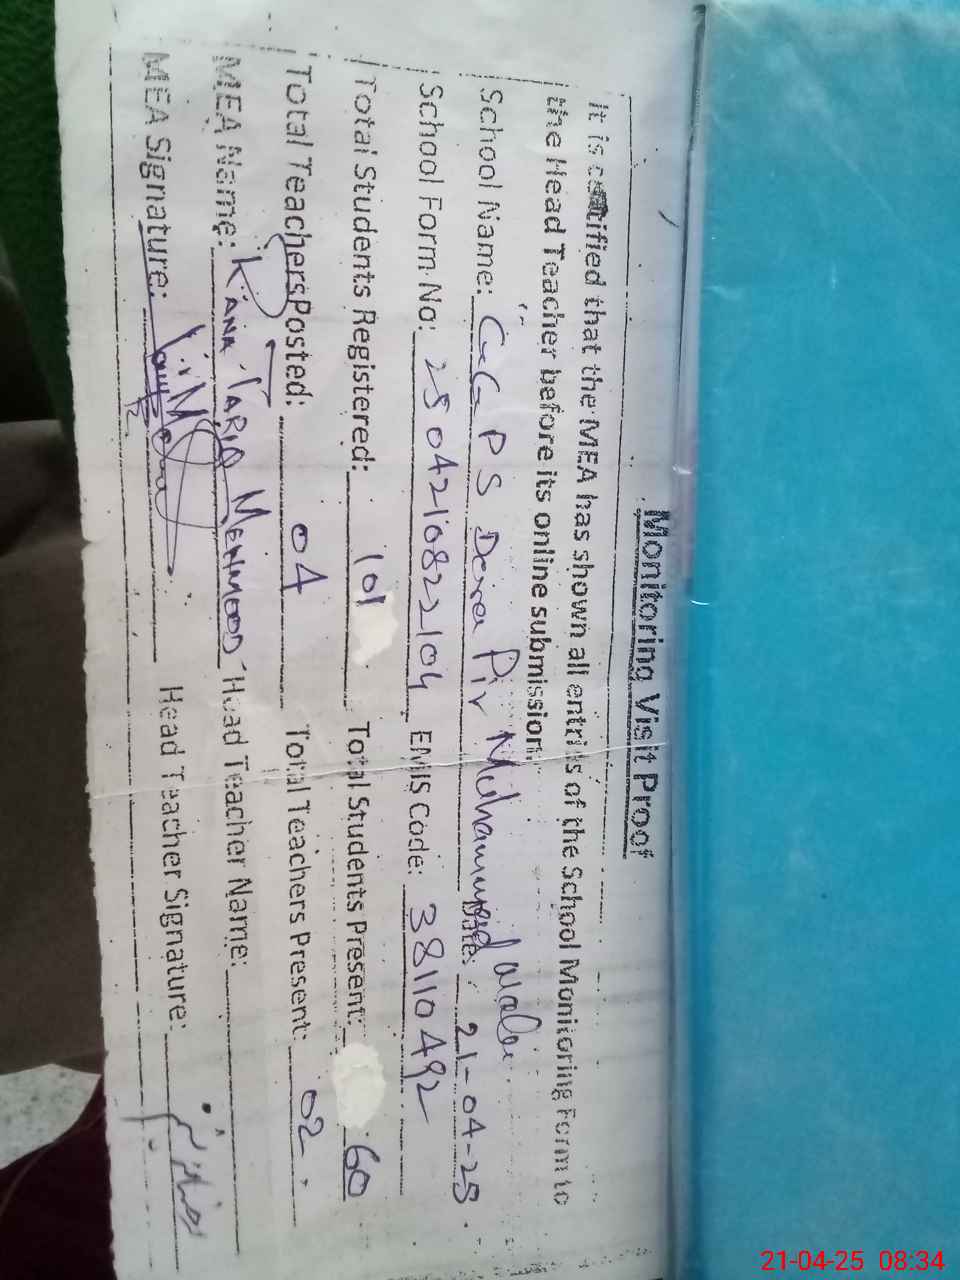 Monitoring Visit Proof
It is certified that the MEA has shown all entries of the School Monitoring Form to
the Head Teacher before its online submission.
School Name: GGPS Derra Pir Muhammad Wala Date: 21-04-25
School Form No: 2504210822104 EMIS Code: 38110492
Total Students Registered: 101 Total Students Present: 60
Total Teachers Posted: 04 Total Teachers Present: 02
MEA Name: RANA TARIQ MEHMOOD Head Teacher Name:
MEA Signature: Head Teacher Signature:
21-04-25 08:34